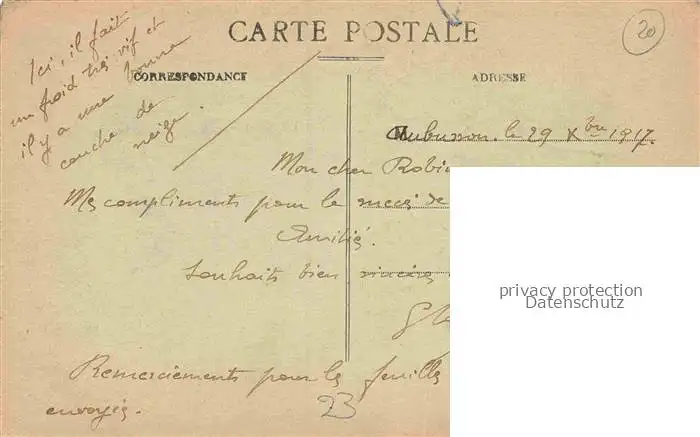 CARTE POSTALE
20
CORRESPONDANCE
ADRESSE
Ici, il fait
un froid très vif et
il y a une bonne
couche de
neige.
Aubusson. le 29 Xbre 1917.
Mon cher Robi
Mes compliments pour le succès de
Amitiés.
Souhaits bien sincères
privacy protection
Datenschutz
Remerciements pour les feuilles
envoyées.
23